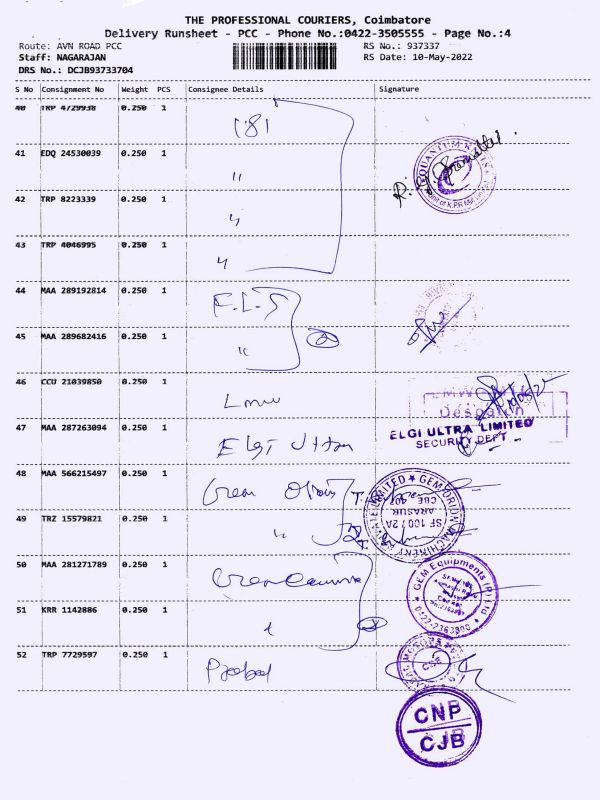 THE PROFESSIONAL COURIERS, Coimbatore
Delivery Runsheet - PCC - Phone No.:0422-3505555 - Page No.:4
Route: AVN ROAD PCC
RS No.: 937337
Staff: NAGARAJAN
RS Date: 10-May-2022
DRS No.: DCJB93733704
S No Consignment No Weight PCS Consignee Details Signature
40 TRP 4729938 0.250 1
181
41 EDQ 24530039 0.250 1 "
QUANTUM KNITS
42 TRP 8223339 0.250 1 "
43 TRP 4046995 0.250 1 "
44 MAA 289192814 0.250 1
45 MAA 289682416 0.250 1 "
46 CCU 21039850 0.250 1 Lmw
Despatch
47 MAA 287263094 0.250 1 Elgi Ultra
ELGI ULTRA LIMITED
SECURITY DEPT.
48 MAA 566215497 0.250 1
49 TRZ 15579821 0.250 1 "
SF 100 / 2A
ARASUR
CBE 407
50 MAA 281271789 0.250 1
GEM Equipments (P) Ltd
0422-2363800
51 KRR 1142886 0.250 1
52 TRP 7729597 0.250 1
CBE
CNP
CJB